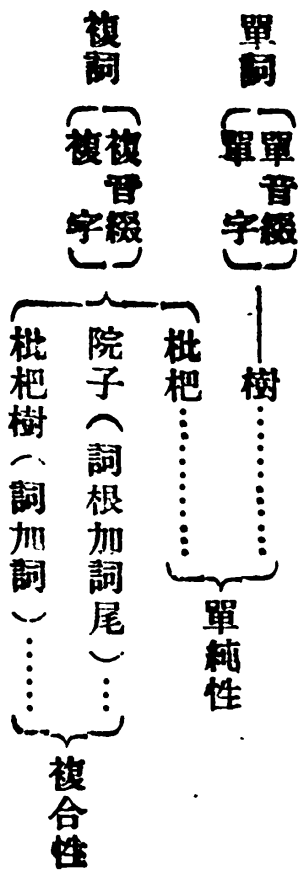 單詞
單音綴
單字
樹……………
複詞
複音綴
複字
枇杷……………
單純性
院子（詞根加詞尾）…
枇杷樹（詞加詞）……
複合性